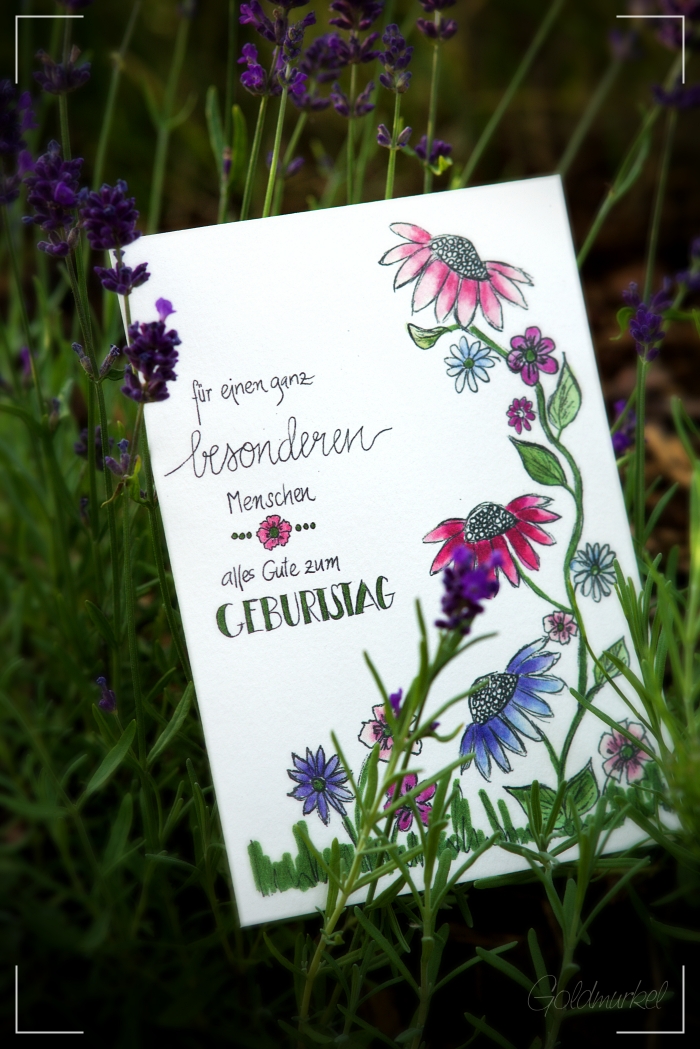 für einen ganz
besonderen
Menschen
alles Gute zum
GEBURTSTAG
Goldmurkel